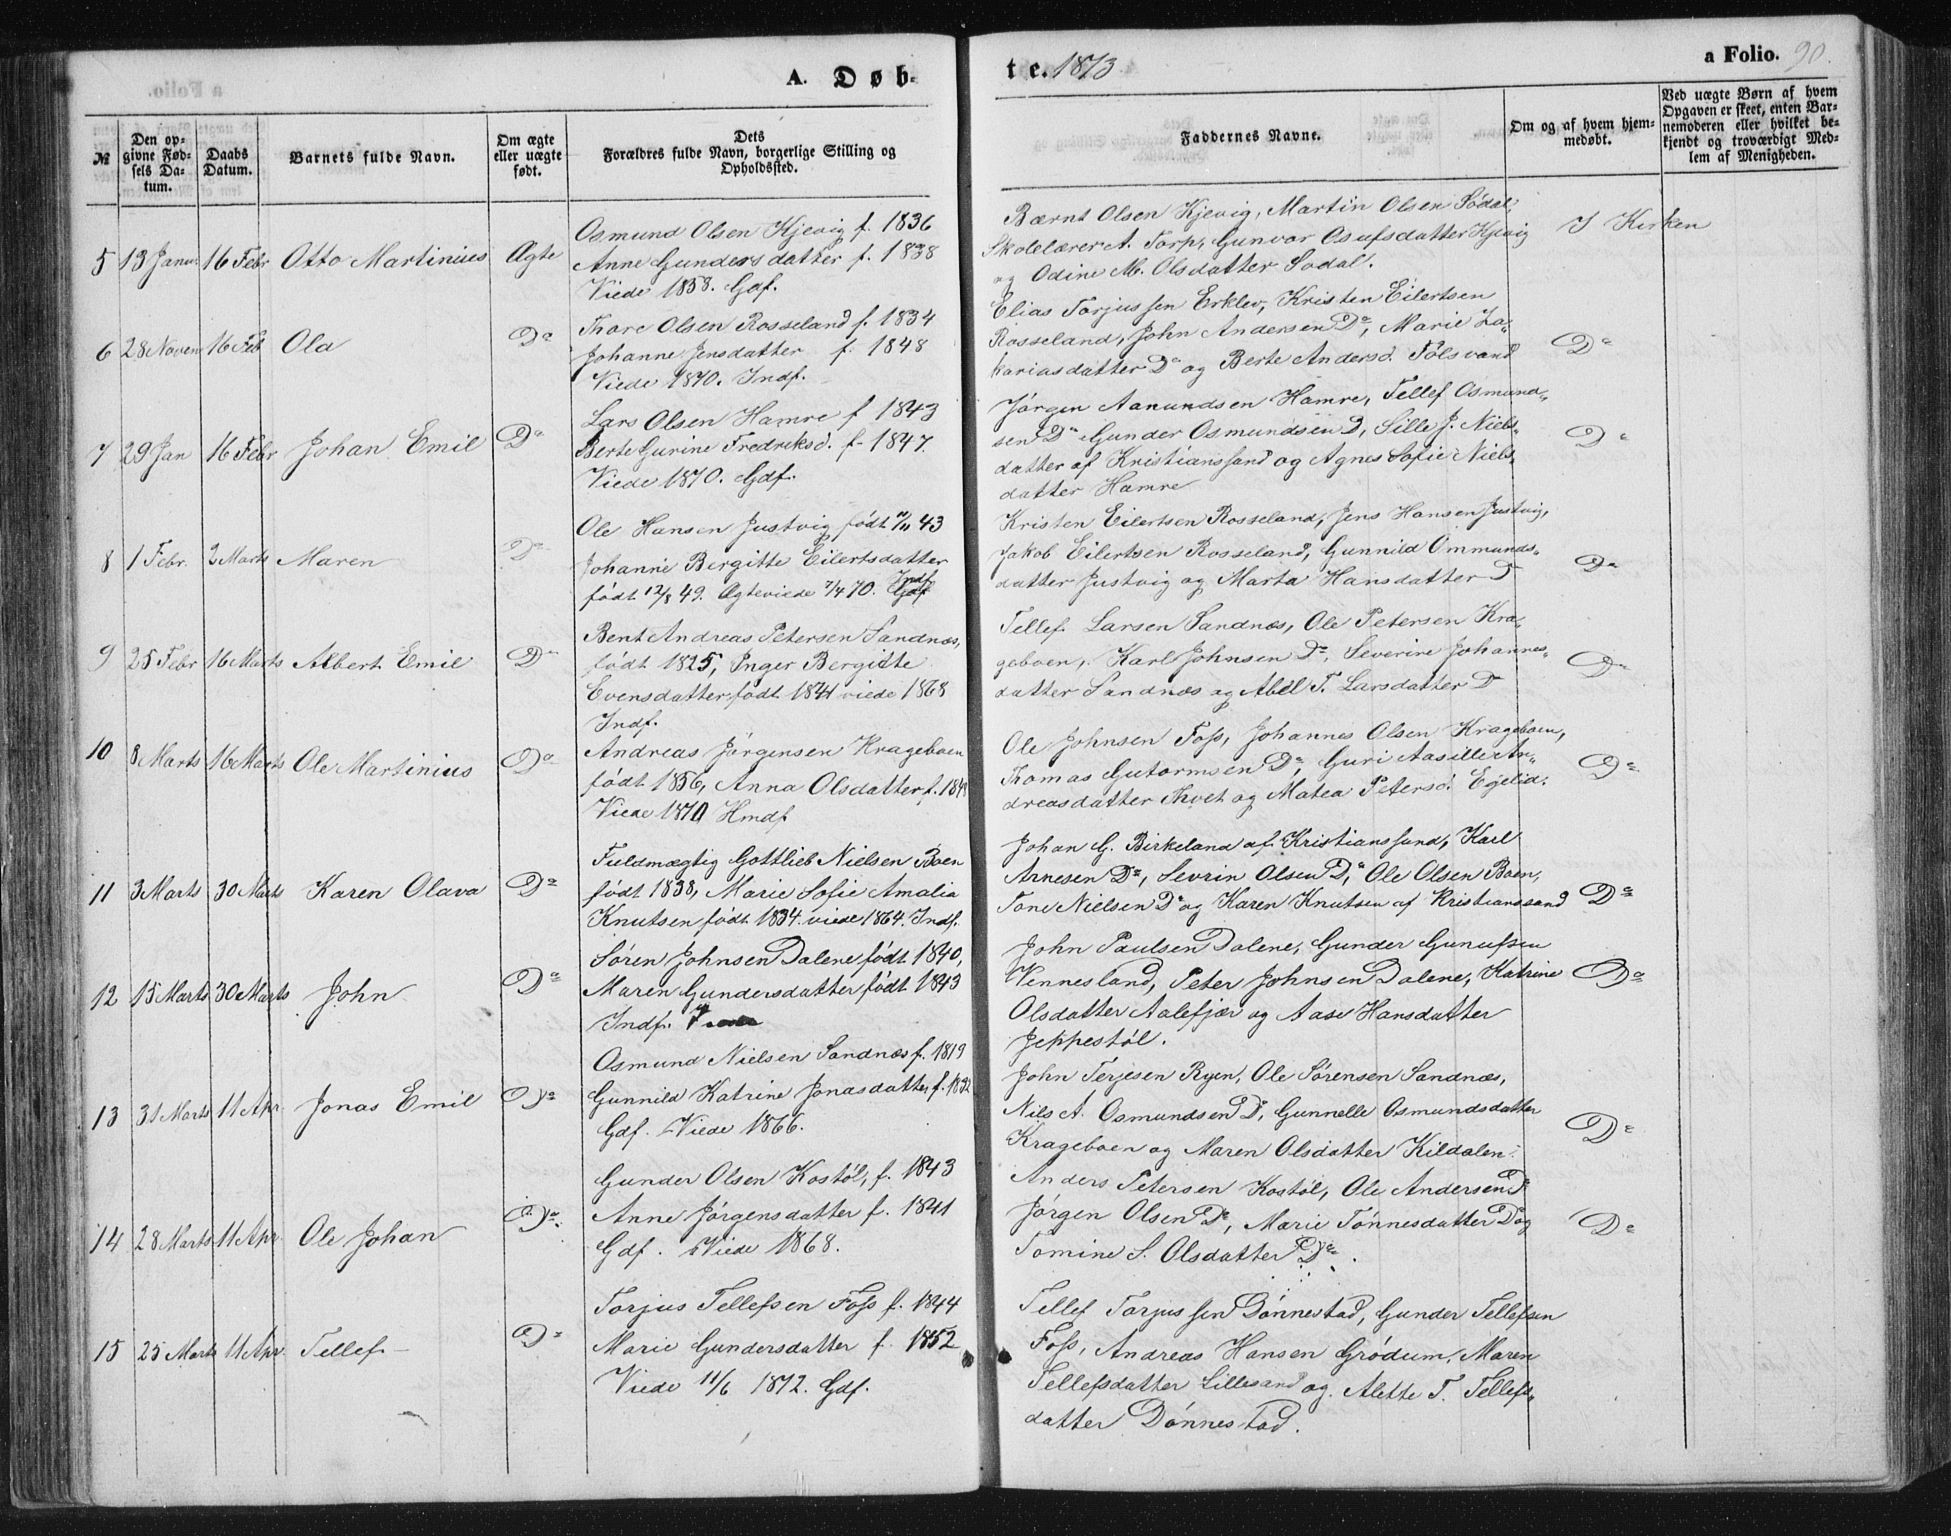 A. Døb-
te. 1873.
a Folio. 90.
№
Den op-
givne Fød-
sels Da-
tum.
Daabs
Datum.
Barnets fulde Navn.
Om ægte
eller uægte
født.
Dets
Forældres fulde Navn, borgerlige Stilling og
Opholdssted.
Faddernes Navne.
Om og af hvem hjem-
medøbt.
Ved uægte Børn af hvem
Opgaven er skeet, enten Bar-
nemoderen eller hvilket be-
kjendt og troværdigt Med-
lem af Menigheden.
5 13 Janu. 16 Febr Otto Martinius Ægte
Osmund Olsen Kjevig f. 1836
Anne Gundersdatter f. 1838
Viede 1858. Gdf.
Bærnt Olsen Kjevig, Martin Olsen Södal,
Skolelærer A. Torp, Gunvor Osufsdatter Kjevig
og Odine M. Olsdatter Sodal.
I Kirken
6 28 Novem 16 Feb Ola Do
Thore Olsen Rosseland f. 1834
Johanne Jensdatter f. 1848
Viede 1870. Indf.
Elias Torjussen Erklev, Kristen Eilertsen
Rosseland, John Andersen Do, Marie Za-
kariasdatter Do og Berte Andersd. Fölsvand
Do
7 29 Jan 16 Febr Johan Emil Do
Lars Olsen Hamre f 1843
Berte Gurine Fredriksd. f. 1847.
Viede 1870. Gdf.
Jörgen Aanundsen Hamre, Tellef Osmund-
sen Do Gunder Osmundsen D, Sille J. Niels-
datter af Kristianssand og Agnes Sofie Niels-
datter Hamre
Do
8 1 Febr. 2 Marts Maren Do
Ole Hansen Justvig født 7/11 43
Johanne Bergitte Eilertsdatter
født 12/8 49. Ægteviede 7/4 70. Indf
Gdf
Kristen Eilertsen Rosseland, Jens Hansen Justvig,
Jakob Eilertsen Rosseland, Gunnild Ommunds-
datter Justvig og Marta Hansdatter D
Do
9 25 Febr 16 Marts Albert Emil Do
Bent Andreas Petersen Sandnæs,
født 1825, Inger Bergitte
Evensdatter, født 1841 viede 1868
Indf.
Tellef Larsen Sandnæs, Ole Petersen Kra-
geboen, Karl Johnsen Do, Severine Johannes-
datter Sandnæs og Abel T. Larsdatter D
Do
10 8 Marts 16 Marts Ole Martinius Do
Andreas Jörgensen Krageboen
født 1836, Anna Olsdatter f. 1849
Viede 1870 Hmdf
Ole Johnsen Foss, Johannes Olsen Krageboen,
Thomas Gutormsen Do, Guri Aasille An-
dreasdatter Kvet og Matea Petersd. Egelid.
Do
11 3 Marts 30 Marts Karen Olava Do
Fuldmægtig Gottlieb Nielsen Boen
født 1838, Marie Sofie Amalia
Knutsen, født 1834. viede 1864. Indf.
Johan G. Birkeland af Kristianssand, Karl
Arnesen Do, Sevrin Olsen D, Ole Olsen Boen,
Tone Nielsen Do og Karen Knutsen af Kristianssand
Do
12 15 Marts 30 Marts John Do
Sören Johnsen Dalene født 1840,
Maren Gundersdatter født 1843
Indf.
John Paulsen Dalene, Gunder Gunufsen
Vennesland, Peter Johnsen Dalene, Katrine
Olsdatter Aalefjær og Aase Hansdatter
Jeppestöl.
Do
13 31 Marts 11 Apr. Jonas Emil Do
Osmund Nielsen Sandnæs f. 1819
Gunnild Katrine Jonasdatter f. 1832
Gdf. Viede 1866.
John Terjesen Ryen, Ole Sörensen Sandnæs,
Nils A. Osmundsen D, Gunnelle Osmundsdatter
Krageboen og Maren Olsdatter Kildalen
Do
14 28 Marts 11 Apr Ole Johan Do
Gunder Olsen Kostöl, f. 1843
Anne Jörgensdatter f. 1841
Gdf. Viede 1868.
Anders Petersen Kostöl, Ole Andersen D
Jörgen Olsen Do, Marie Tönnesdatter D og
Tomine S. Olsdatter Do.
Do
15 25 Marts 11 Apr. Tellef Do
Torjus Tellefsen Foss f. 1844
Marie Gundersdatter f. 1852
Viede 11/6 1872. Gdf.
Tellef Torjussen Dönnestad, Gunder Tellefsen
Foss, Andreas Hansen Grödum, Maren
Tellefsdatter Lillesand og Alette T. Tellefs-
datter Dönnestad.